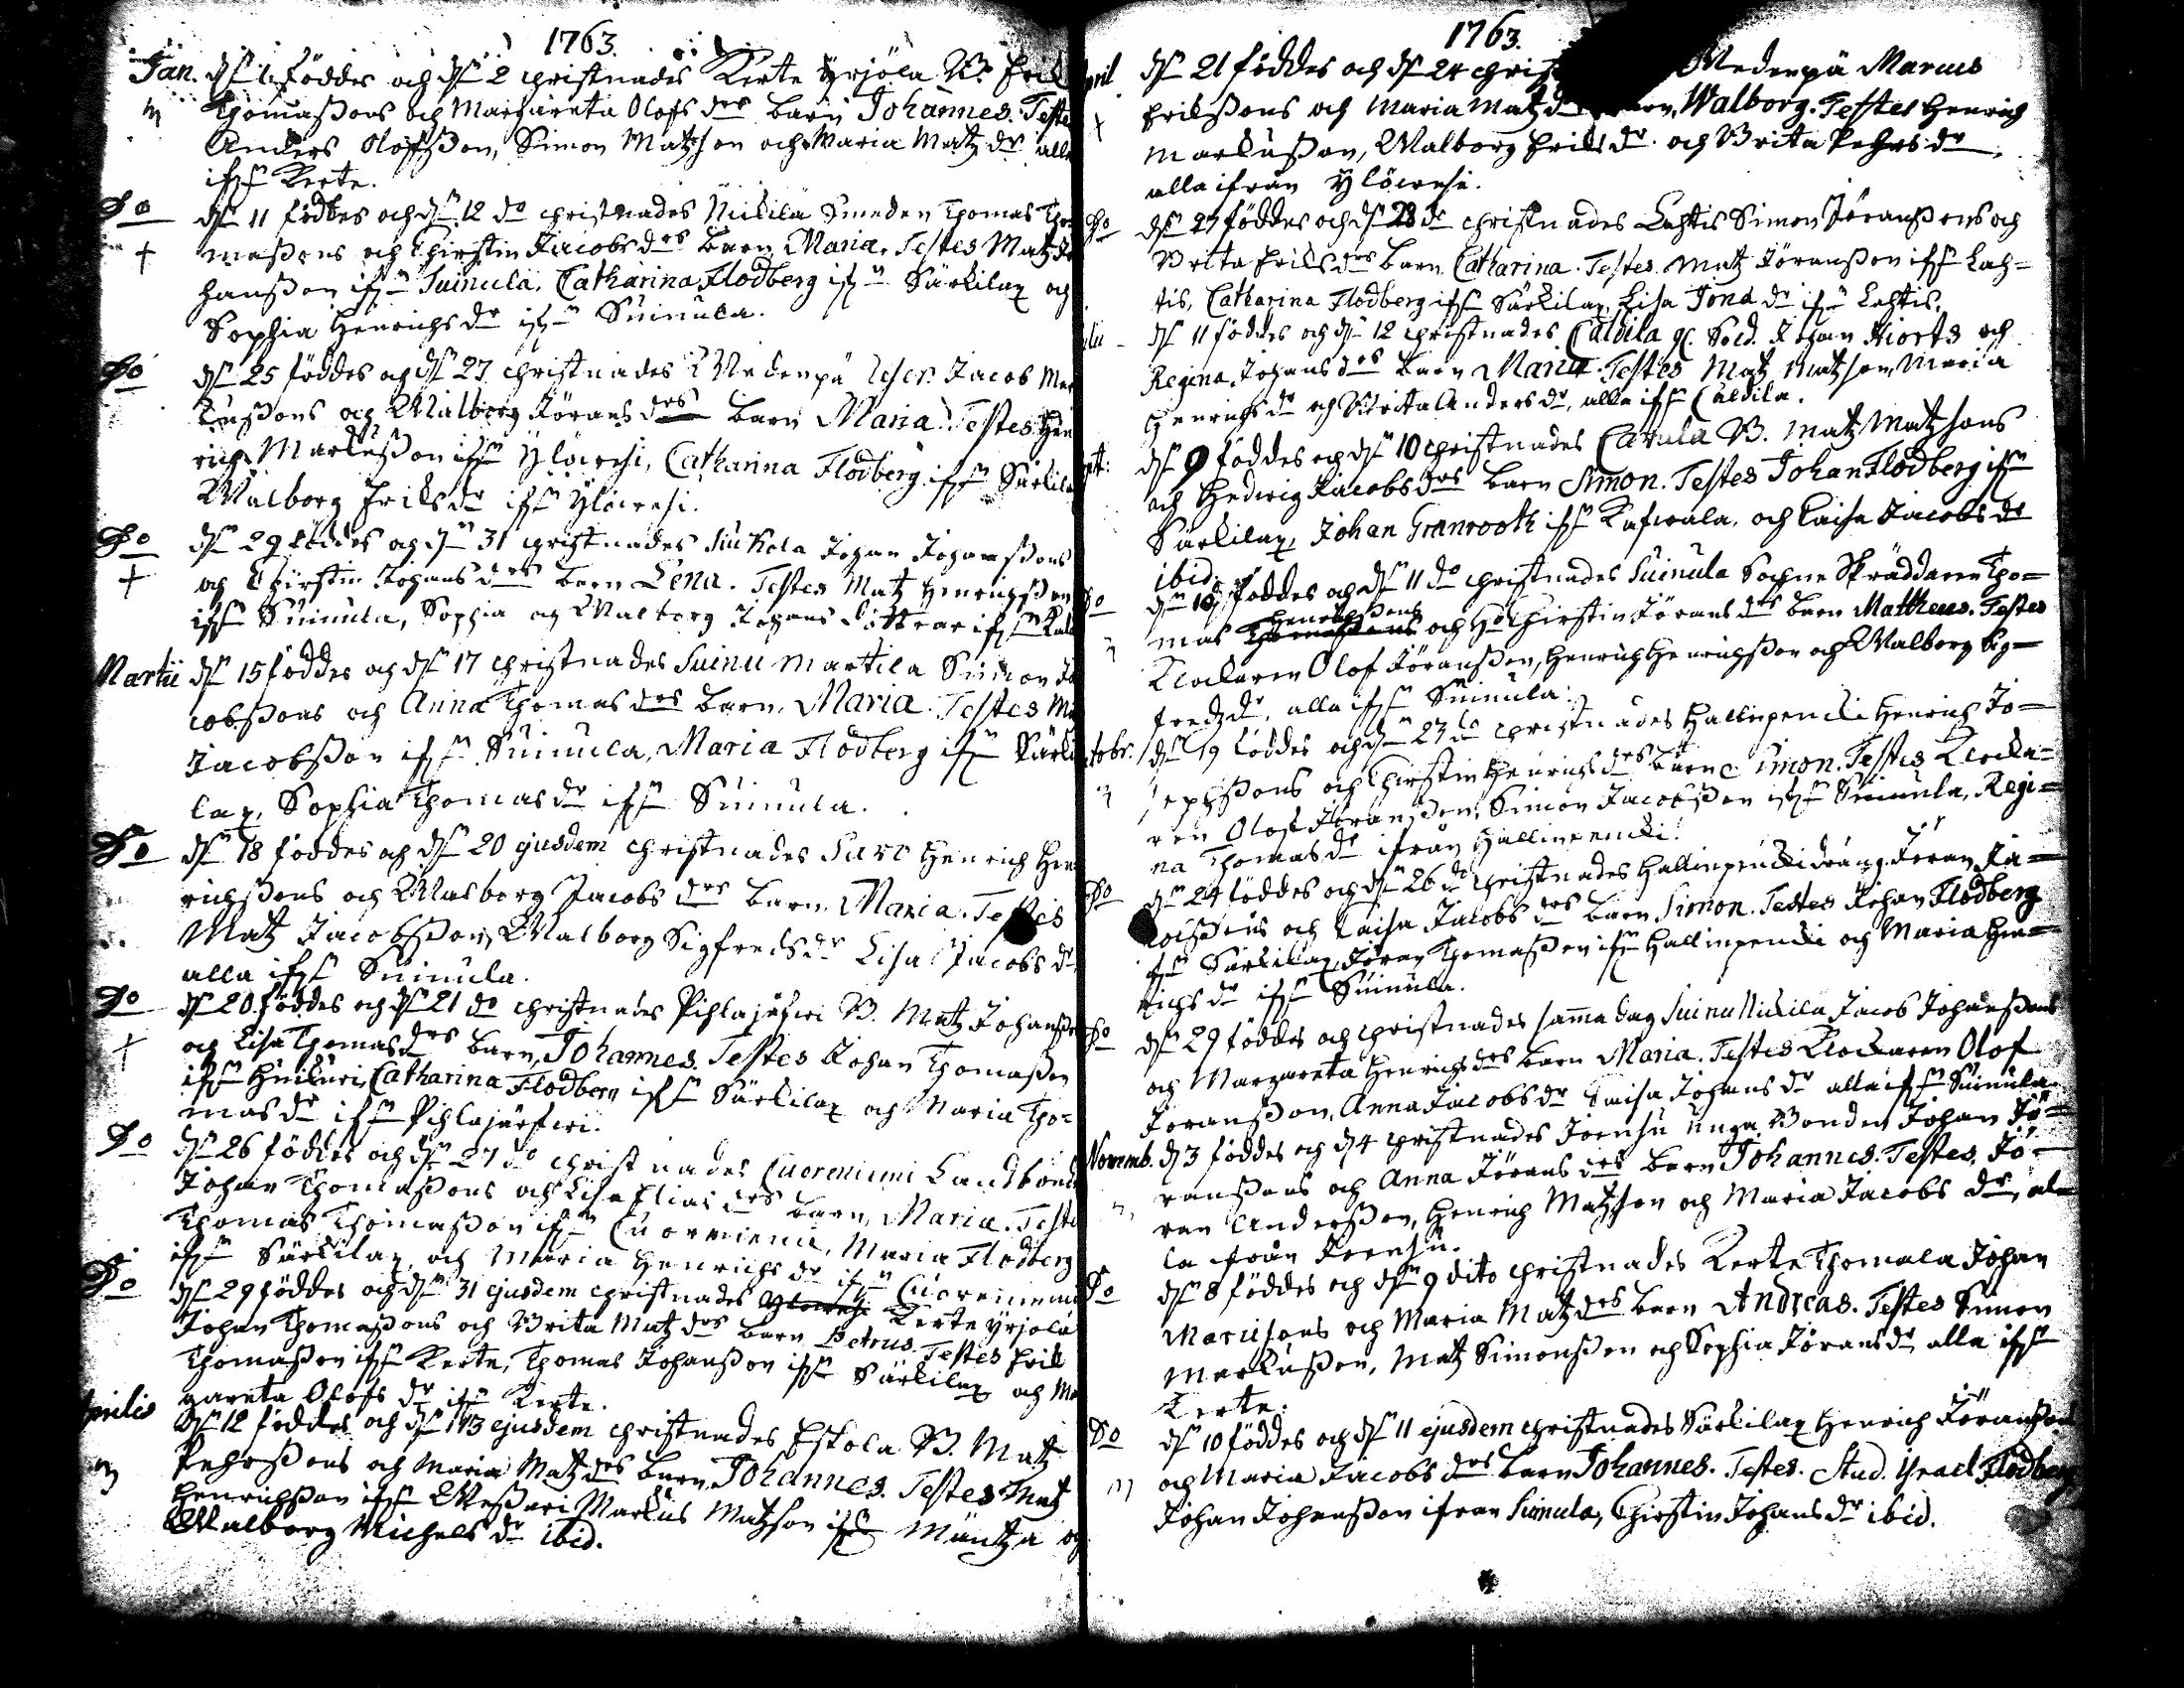 1763.
Jan. d. 1 föddes och d. 2 christnades Kerte Yrjöla B. Erik
Thomaßons och Margareta Olofs drs barn Johannes. Teste
Anders Olofßon, Simon Matzson och Maria Matz dr alla
ifrån Kerte.
Do d. 11 föddes och d. 12 do christnades Nickilä Smeden Thomas Tho
maßons och Chirstin Jacobs drs barn Maria. Testes Matz Jo
hanßon ifrån Suinula, Catharina Flodberg ifrån Särkilax och
Sophia Henrichs dr ifrån Suinula.
Do d. 25 föddes och d. 27 christnades Wedenpä Jacob Mar
kußons och Walborg Jörans drs barn Maria. Testes Hen
rich Markußon ifrån Ylöwesi, Catharina Flodberg ifrån Särkila
Walborg Eriks dr ifrån Ylöwesi.
Do d. 29 föddes och d. 31 christnades Johan Johanßons
och Chirstin Johans drs barn Lena. Testes Matz Henrichßon
ifrån Suinula, Sophia och Walborg Johans döttrar ifrån
Martii d. 15 föddes och d. 17 christnades Suinu Martila Simon Ja
cobßons och Anna Thomas drs barn Maria. Testes Ma
Jacobßon ifrån Suinula, Maria Flodberg ifrån Särki
lax, Sophia Thomas dr ifrån Suinula.
Do d. 18 föddes och d. 20 ejusdem christnades Suro Henrich Hen
richßons och Walborg Jacobs drs barn Maria. Testes
Matz Jacobßon, Walborg Sigfreds dr Lisa Jacobs dr
alla ifrån Suinula.
Do d. 20 föddes och d. 21 do christnades Pihlajäfwi B. Matz Johanßo
och Lisa Thomas drs barn, Johannes. Testes Johan Thomaßon
ifrån Huikuri, Catharina Flodberg ifrån Särkilax och Maria Tho-
mas dr ifrån Pihlajärfwi.
Do d. 26 föddes och d. 27 do christnades Cuoreniemi Landbonde
Johan Thomaßons och Lisa Elias drs barn, Maria. Teste
Thomas Thomaßon ifrån Cuoreniemi, Maria Flodberg
ifrån Särkilax, och Maria Henrichs dr ifrån Cuoreniemi
Do d. 29 föddes och d. 31 ejusdem christnades Ylöwesi Kerte Yrjola
Johan Thomaßons och Brita Matz drs barn Petrus. Testes Erik
Thomaßon ifrån Kerte, Thomas Johanßon ifrån Särkilax och Mar
gareta Olofs dr ifrån Kerte.
Aprilis d. 12 föddes och d. 13 ejusdem christnades Eskola B. Matz
Pehrßons och Maria Matz drs barn Johannes. Testes Matz
Henrichßon ifrån Weßari Markus Matzson ifrån Mäntzä och
Walborg Michels dr ibid.
1763.
April d. 21 föddes och d. 24 christ Wedenpä Marcus
Erikßons och Maria Matz d barn, Walborg. Testes Henrich
Markußon, Walborg Eriks dr och Brita Pehrs dr
alla ifrån Ylöwesi.
Do d. 27 föddes och d. 28 do christnades Lahtis Simon Jöranßons och
Brita Eriks drs barn Catharina. Testes. Matz Jöranßon ifrån Lah-
tis, Catharina Flodberg ifrån Särkilax, Lisa Jona dr ifrån Lahtis.
d. 11 föddes och d. 12 christnades Caldila Sold. Johan Hiorts och
Regina Johans drs barn Maria. Testes Matz Matzson, Maria
Henrichs dr och Brita Anders dr, alla ifrån Caldila.
d. 9 föddes och d. 10 christnades Carula B. Matz Matzsons
och Hedwig Jacobs drs barn Simon. Testes Johan Flodberg ifrån
Särkilax, Johan Granrooth ifrån Kafwala, och Caisa Jacobs dr
ibid.
Do d. 10 föddes och d. 11 do christnades Suinula Sochne Skräddaren Tho-
Henrichßons
mas Thomaßons och H. Chirstin Jörans drs barn Mattheus. Testes
Klockaren Olof Jöranßon, Henrich Henrichßon och Walborg Sig-
fredz dr, alla ifrån Suinula.
Octobr. d. 19 föddes och d. 23 do christnades Hallinpenki Henrich Jo-
sephßons och Chirstin Henrichs drs barn Simon. Testes Klocka-
ren Olof Jöranßon, Simon Jacobßon ifrån Suinula, Regi-
na Thomas dr ifrån Hallinpenki.
Do d. 24 föddes och d. 26 do christnades Hallinpenki dräng Jöran Ja-
cobßons och Caisa Jacobs drs barn Simon. Testes Johan Flodberg
ifrån Särkilax, Jöran Thomaßon ifrån Hallinpenki och Maria Hen-
richs dr ifrån Suinula.
Do d. 29 föddes och christnades samma dag Suinu Nickila Jacob Johanßons
och Margareta Henrichs drs barn Maria. Testes Klockaren Olof
Jöranßon, Anna Jacobs dr Caisa Johans dr alla ifrån Suinula
Novemb. d. 3 föddes och d. 4 christnades Joensu unga Bonden Johan Jö-
ranßons och Anna Jörans drs barn Johannes. Testes. Jö-
ran Anderßon, Henrich Matzson och Maria Jacobs dr, al-
la från Joensu.
Do d. 8 föddes och d. 9 dito christnades Kerte Thomala Johan
Marcisons och Maria Matz drs barn Andreas. Testes Simon
Markußon, Matz Simonßon och Sophia Jörans dr alla ifrån
Kerte.
Do d. 10 föddes och d. 11 ejusdem christnades Särkilax Henrich Jöranßons
och Maria Jacobs drs barn Johannes. Testes. Stud. Israel Flodberg
Johan Johanßon ifrån Suinula, Chirstin Johans dr ibid.